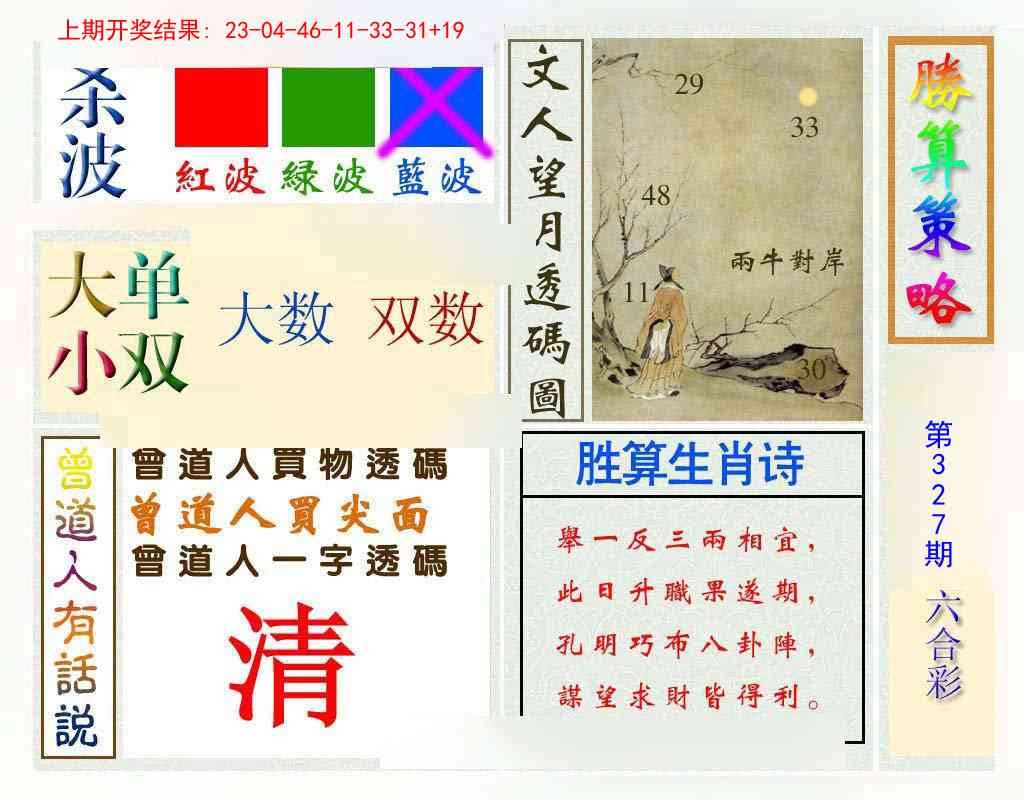 上期开奖结果：23-04-46-11-33-31+19
杀波
紅波 緑波 藍波
大单
小双
大数 双数
文人望月透碼圖
29
33
48
兩牛對岸
11
30
勝算策略
第327期 六合彩
曾道人有話説
曾道人買物透碼
曾道人買尖面
曾道人一字透碼
清
胜算生肖诗
舉一反三兩相宜，
此日升職果遂期，
孔明巧布八卦陣，
謀望求財皆得利。